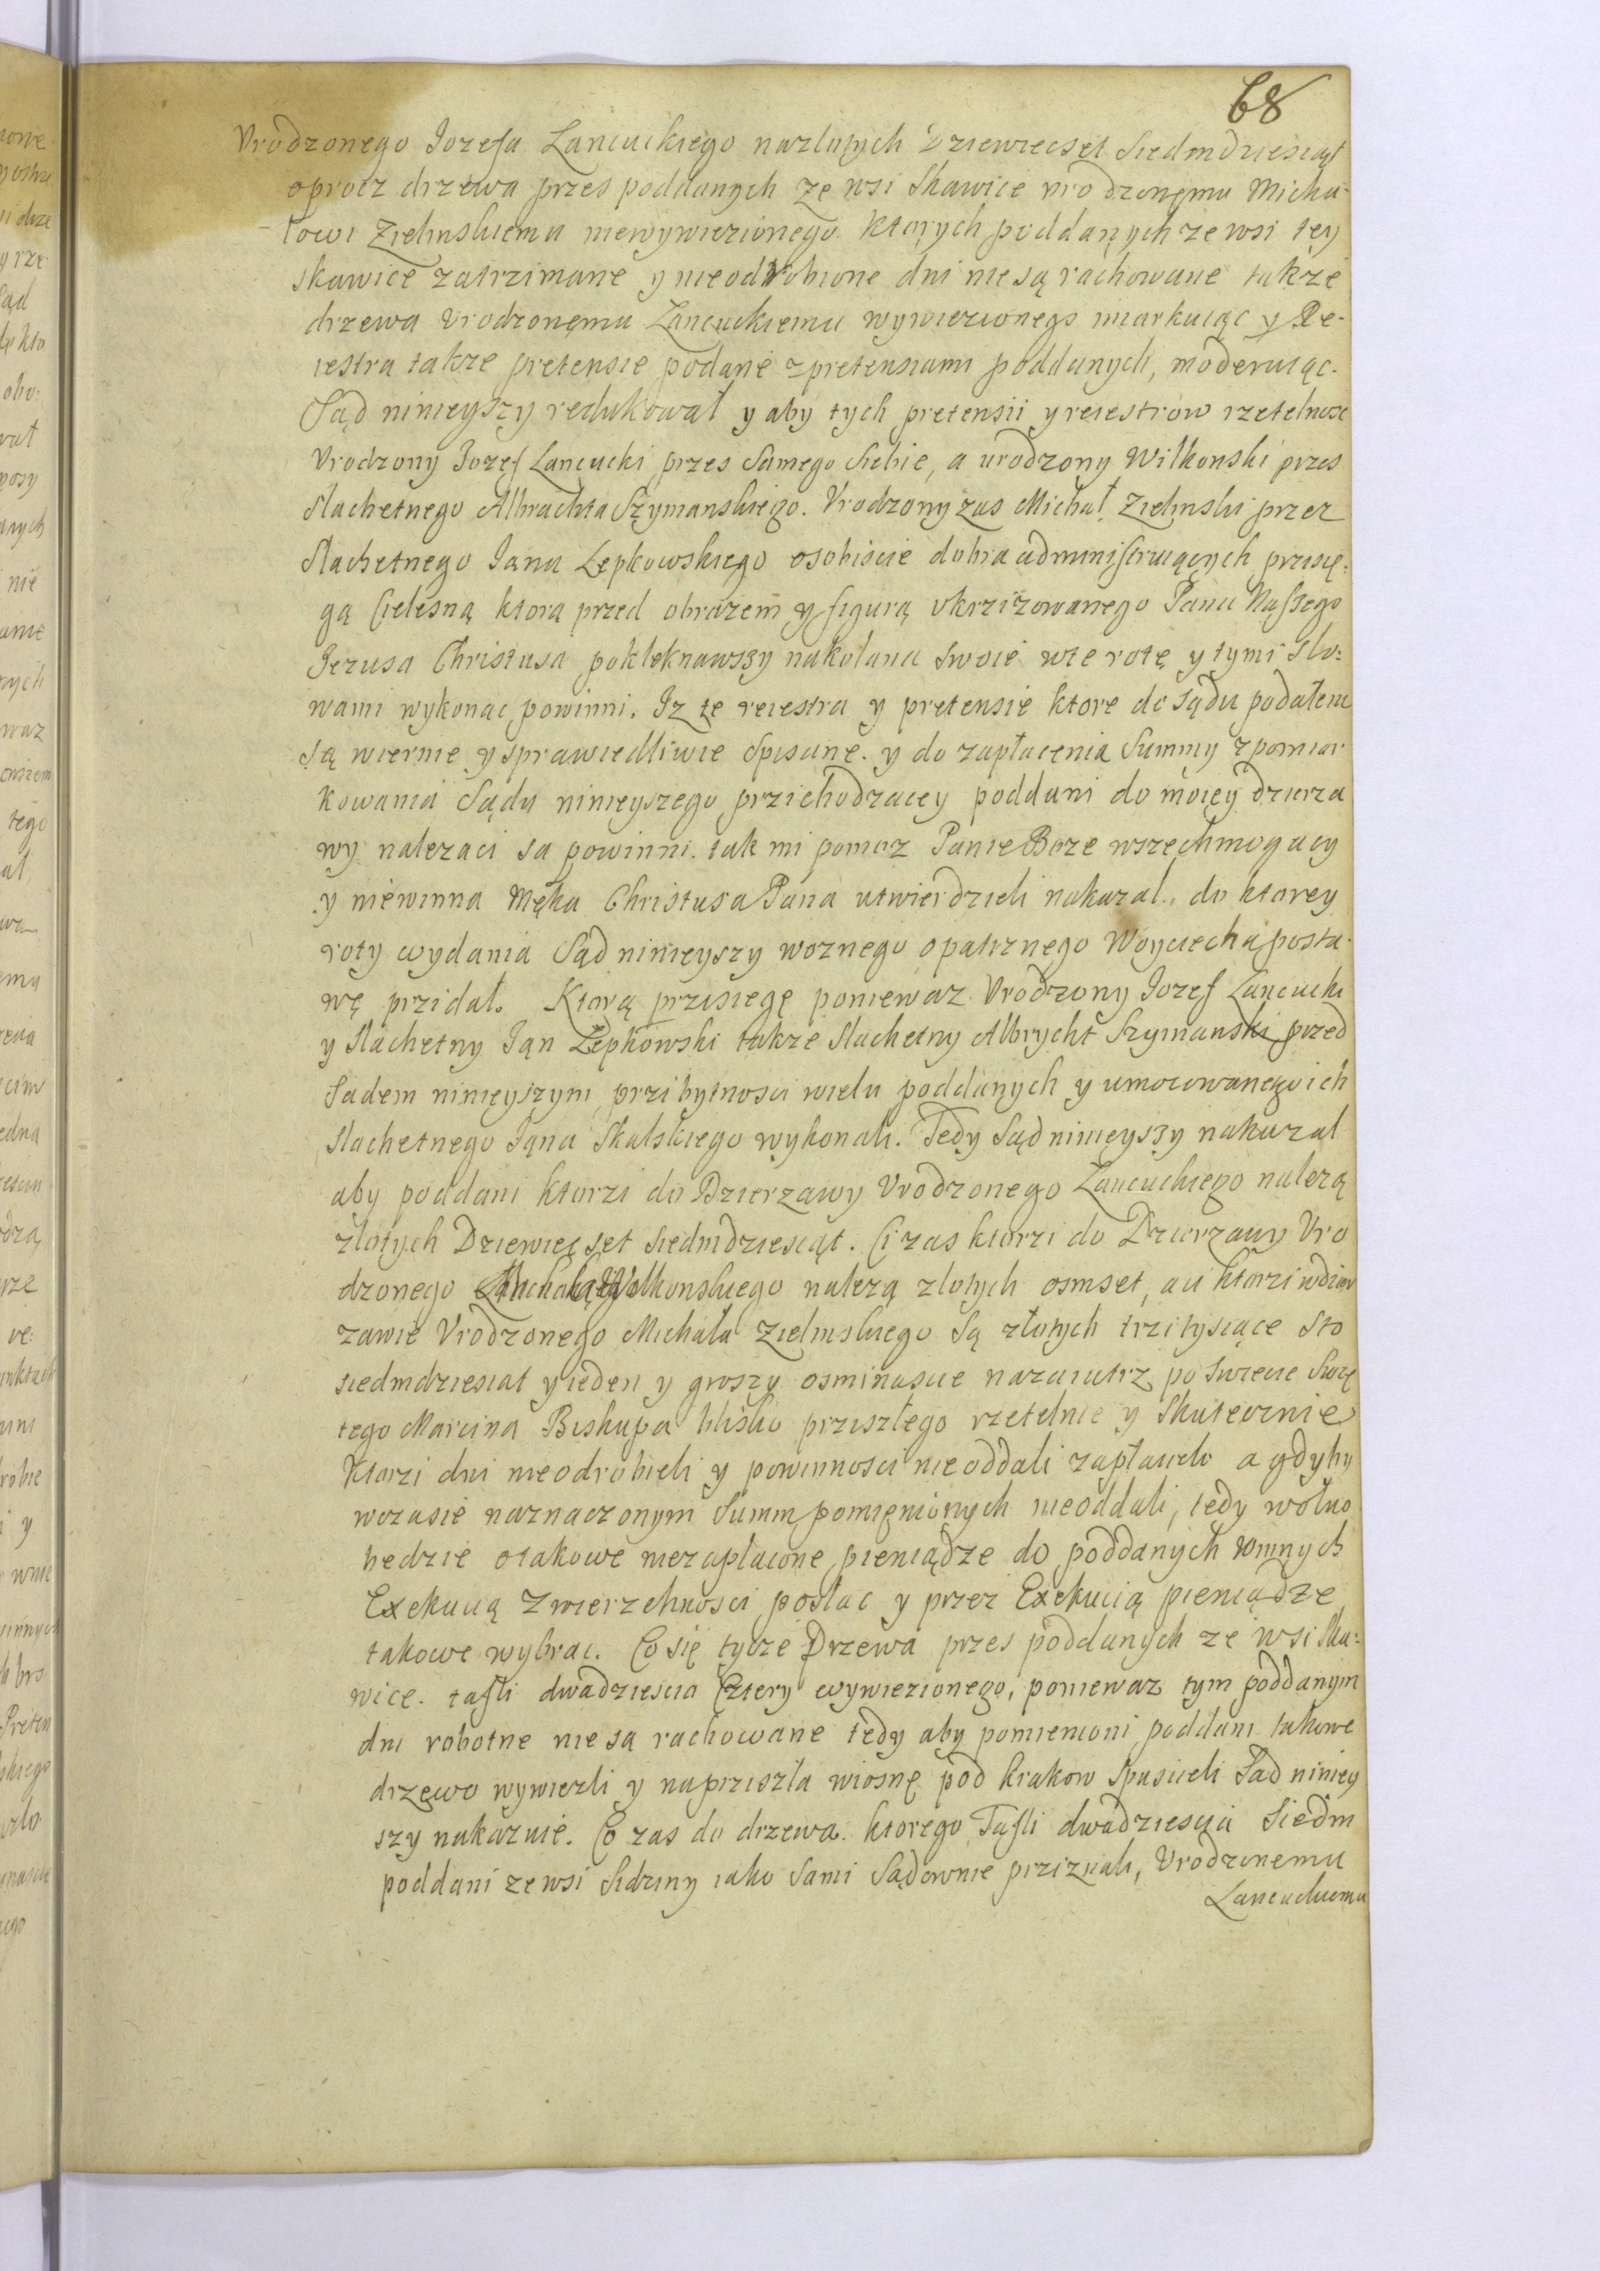 68
Vrodzonego Jozefa Lancuckiego nazlotych Dziewiecset Siedmdziesiąt
oprocz drzewa przes poddanych ze wsi Skawice vrodzonemu Micha-
łowi Zielinskiemu niewywiezionego. których poddanych ze wsi tey
skawice zatrzimane y nieodrobione dni nie są rachowane także
drzewa Vrodzonemu Lancuckiemu wywiezionego miarkuiąc y Re-
iestra takze pretensie podane z pretensiami poddanych, moderuiąc.
Sąd ninieyszy redukował y aby tych pretensii y reiestrow rzetelnosc
Vrodzony Jozef Lancucki przes Samego Siebie, a urodzony Wilkonski przes
Slachetnego Albrachta Szymanskiego. Vrodzony zas Michał Zielinski przez
Slachetnego Jana Lepkowskiego osobiscie dobra administruiących przisię:
gą Cielesną ktorą przed obrazem y figurą vkrziżowanego Pana Naszego
Jezusa Christusa poklęknawszy nakolana swoie wte rotę y tymi Slo:
wami wykonac powinni. Iz te reiestra y pretensie ktore do sądu podałem
są wiernie y sprawiedliwie Spisane. y do zapłacenia Summy z pomiar
kowania Sądu ninieyszego przichodzacey poddani do moiey dzierza
wy nalezaci sa powinni. tak mi pomoz Panie Boze wszechmogacy
y niewinna Męka Christusa Pana utwierdzieli nakazal. do ktorey
roty wydania Sąd ninieyszy woznego opatrznego Woyciecha posta-
wę przidał. Ktorą przisiegę poniewaz Vrodzony Jozef Lancucki
y Slachetny Jan Lepkowski takze Slachetny Albrycht Szymanski przed
Sadem ninieyszym przibytnosci wielu poddanych y umocowanego ich
Slachetnego Jana Skalskiego wykonali. Tedy Sąd ninieyszy nakazal
aby poddani ktorzi do Dzierzawy Vrodzonego Lancuckiego nalezą
złotych Dziewiec set siedmdziesiąt. Ci zas ktorzi do Dzierzawy Vro
dzonego Wilkonskiego nalezą zlotych osmset, a ci ktorzi wdzier
zawie Vrodzonego Michała Zielinskiego Są złotych trzitysiące sto
siedmdziesiat y ieden y groszy osminascie nazaiutrz po Swiecie Swię
tego Marcina Biskupa blisko prziszłego rzetelnie y Skutecznie
Ktorzi dni nieodrobieli y powinnosci nie oddali zapłacieli a gdyby
wczasie naznaczonym Summ pomięnionych nieoddali, tedy wolno
bedzie otakowe niezapłacone pieniądze do poddanych winnych
Exekucią Zwierzchnosci posłac y przez Exekucią pieniądze
takowe wybrac. Co się tycze Drzewa przes poddanych ze wsi Ska:
wice. tafli dwadziescia Cztery wywiezionego, poniewaz tym poddanym
dni robotne nie są rachowane tedy aby pomienioni poddani takowe
drzewo wywiezli y naprziszła wiosnę pod krakow Spuscieli Sad niniey
szy nakazuie. Co zas do drzewa. ktorego Tafli dwadziescia Siedm
poddani ze wsi Sidziny iako Sami Sądownie prziznali, Vrodzonemu
Lancuckiemu